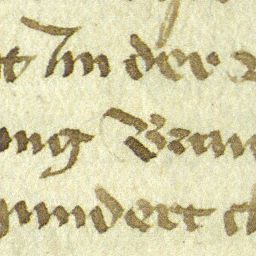 t In der
ung Bran
hundert